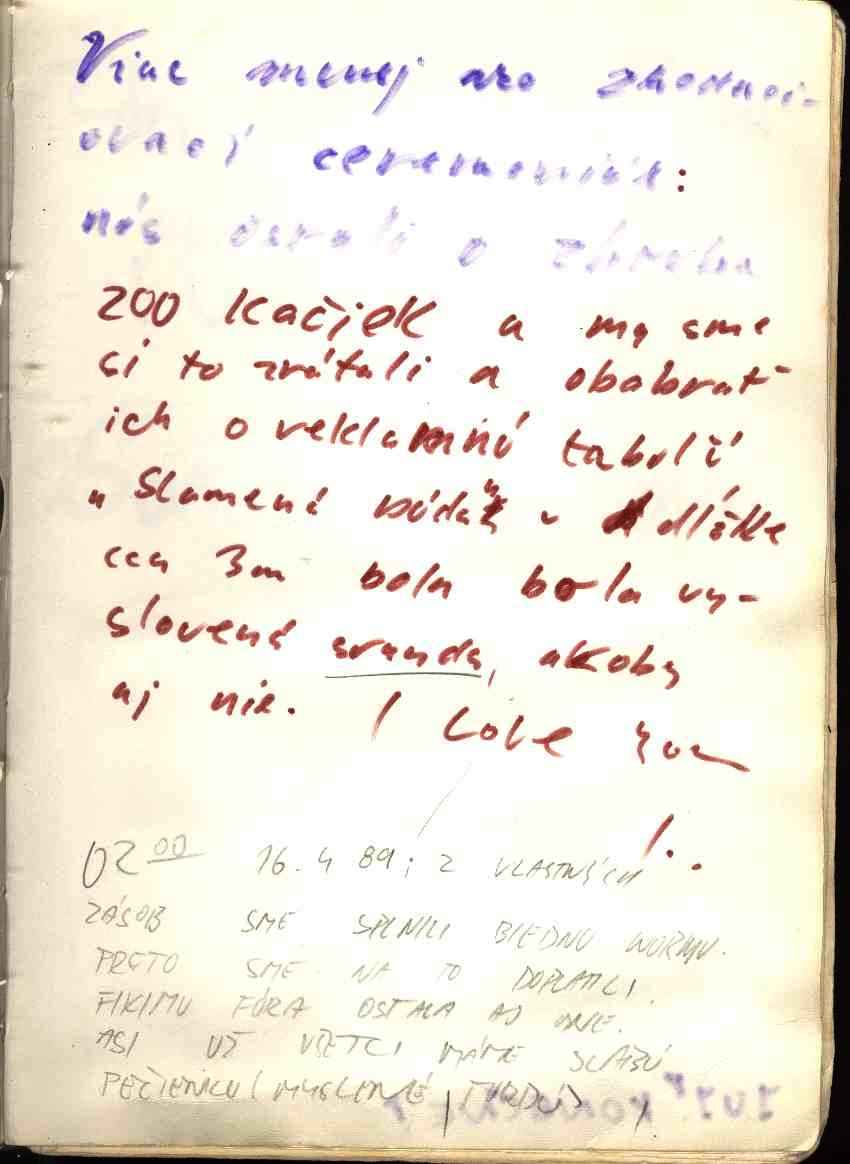 Viac menej ako zhodnoci-
ovací ceremoniál:
nás obrali o zhruba
200 kačiek a my sme
si to zrátali a obabrať
ich o reklamnú tabuľu
"Slamená búda" v dĺžke
cca 3m bola bola vy-
slovená sranda, akoby
aj nie. I love you
!..
02 00 16. 4 89; z vlastných
ZÁSOB SME SPLNILI BIEDNU NORMU.
PRETO SME NA TO DOPLATILI.
FIKIMU FÓRA OSTALA AJ
ASI UŽ VŠETCI MÁME SLABŠÚ
PEČIENKU (MYSLENÉ TVRDÚ)